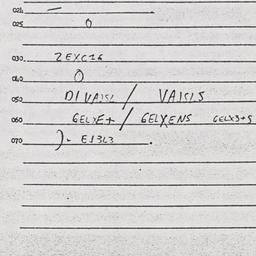 024 —
025 O
030 2EXC16
040 O
050 DIVAJSL / VAJSIS
060 GELXE+ / GELXENS GELX3+S
070 ). EJ3L3 .